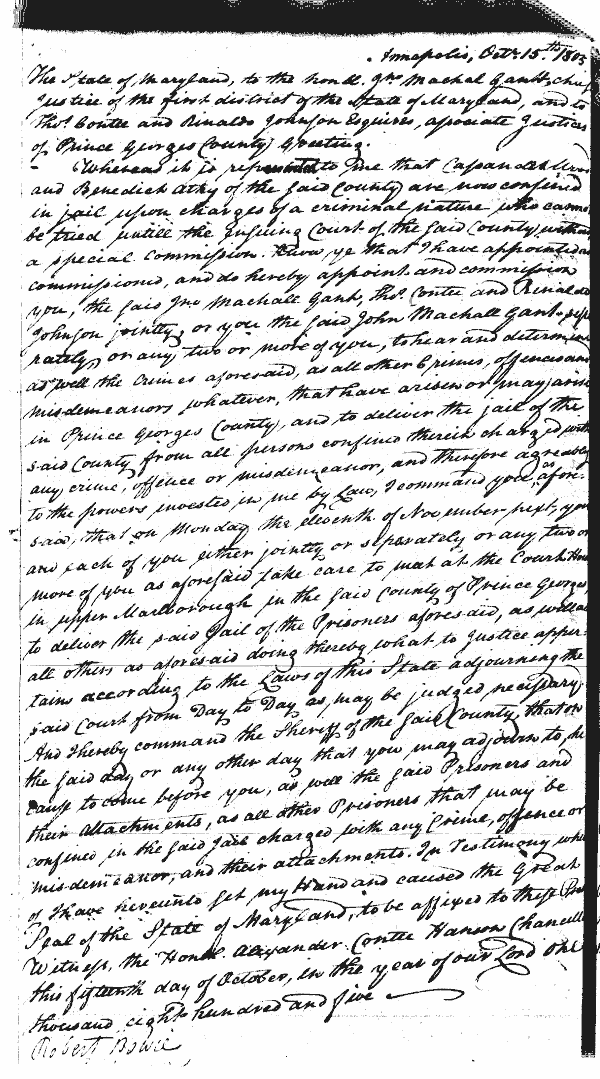 Annapolis, Octr. 15th. 1805
The State of Maryland, to the honble. Jno Machal Gantt, chief
Justice of the first district of the State of Maryland, and to
Thos. Contee and Rinaldo Johnson Esquires, associate Justices
of Prince Georges County Greeting.
Whereas it is represented to me that
and Benedick Athy of the said County are now confined
in jail upon charges of a criminal nature who cannot
be tried untill the ensuing Court of the said County without
a special commission. Know ye that I have appointed and
commissioned, and do hereby appoint and commission
you, the said Jno Machall Gantt, Thos. Contee and Rinaldo
Johnson jointly, or you the said John Machall Gantt sepe
rately, or any two or more of you, to hear and determine
as well the crimes aforesaid, as all other Crimes, offences and
misdemeanors whatever, that have arisen or may arise
in Prince Georges County, and to deliver the jail of the
said County from all persons confined therein charged with
any crime, offence or misdemeanor, and therefore agreeably
to the powers invested in me by Law, I command you, as afore-
said, that on Monday the eleventh of November next, you
and each of you either jointly or seperately or any two or
more of you as aforesaid take care to meet at the Court House
in upper Marlborough in the said County of Prince Georges,
to deliver the said Jail of the Prisoners aforesaid, as well as
all others as aforesaid doing thereby what to Justice apper-
tains according to the Laws of this State adjourning the
said Court from Day to Day as may be judged necessary.
And I hereby command the Sheriff of the said County, that on
the said day or any other day that you may adjourn to he
cause to come before you, as well the said Prisoners and
their attachments, as all other Prisoners that may be
confined in the said Jail charged with any Crime, offence or
misdemeanor, and their attachments. In Testimony where
of I have hereunto set my Hand and caused the Great
Seal of the State of Maryland, to be affixed to these
Witness, the Honble. Alexander Contee Hanson Chancellor
this fifteenth day of October, in the year of our Lord one
thousand eight hundred and five
Robert Bowie